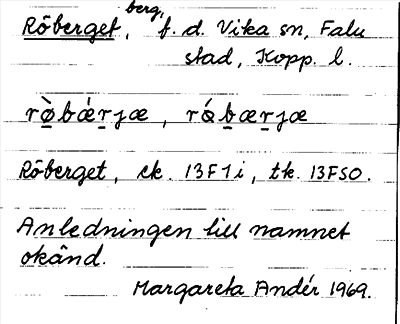 Röberget, berg, f. d. Vika sn, Falu
stad, Kopp. l.
rò̲bǽr̲jæ, ró̲bær̲jæ
Röberget, ek. 13F1i, tk. 13FSO.
Anledningen till namnet
okänd.
Margareta Andér 1969.